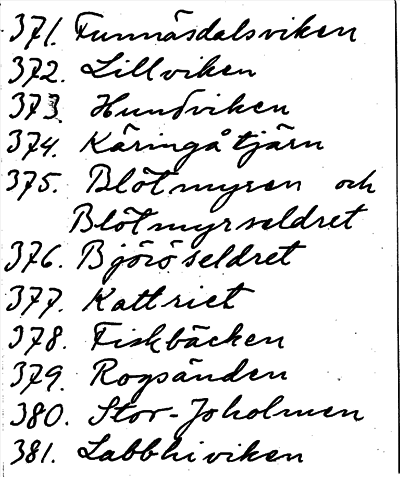 371. Funnäsdalsviken
372. Lillviken
373. Hundviken
374. Käringåtjärn
375. Blötmyren och
Blötmyrseldret
376. Björöseldret
377. Kattriet
378. Fiskbäcken
379. Rogsänden
380. Stor-Joholmen
381. Labbhiviken